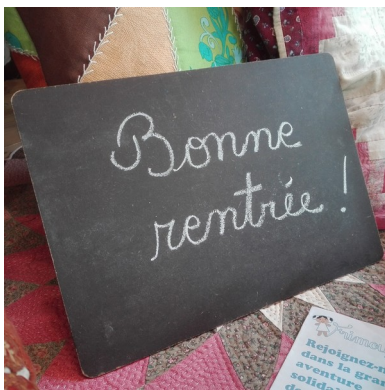 Bonne
rentrée !
Rejoignez-
dans la gra
aventure
solida